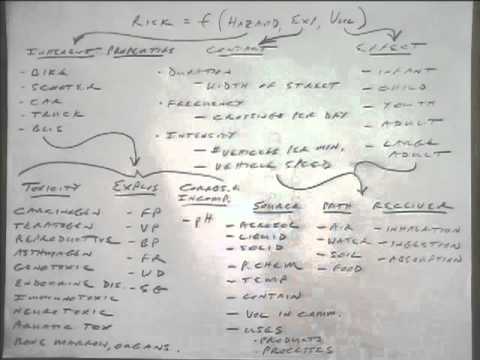 RISK = f (HAZARD, EXP, VUL)
INHERENT PROPERTIES
- BIKE
- SCOOTER
- CAR
- TRUCK
- BUS
CONTACT
• DURATION
- WIDTH OF STREET
• FREQUENCY
- CROSSINGS PER DAY
• INTENSITY
- # VEHICLES PER MIN.
- VEHICLE SPEED
EFFECT
- INFANT
- CHILD
- YOUTH
- ADULT
- LARGE
ADULT
TOXICITY
CARCINOGEN
TERATOGEN
REPRODUCTIVE
ASTHMAGEN
GENOTOXIC
ENDOCRINE DIS.
IMMUNOTOXIC
NEUROTOXIC
AQUATIC TOX
BONE MARROW, ORGANS.
EXPLOS
- FP
- VP
- BP
- FR
- VD
- SG
CORROS. &
INCOMP.
- PH
SOURCE
- AEROSOL
- LIQUID
- SOLID
- P. CHEM
- TEMP
- CONTAIN
- VOL IN COMM.
- USES
• PRODUCTS
PROCESSES
PATH
- AIR
- WATER
- SOIL
- FOOD
RECEIVER
- INHALATION
- INGESTION
- ABSORPTION